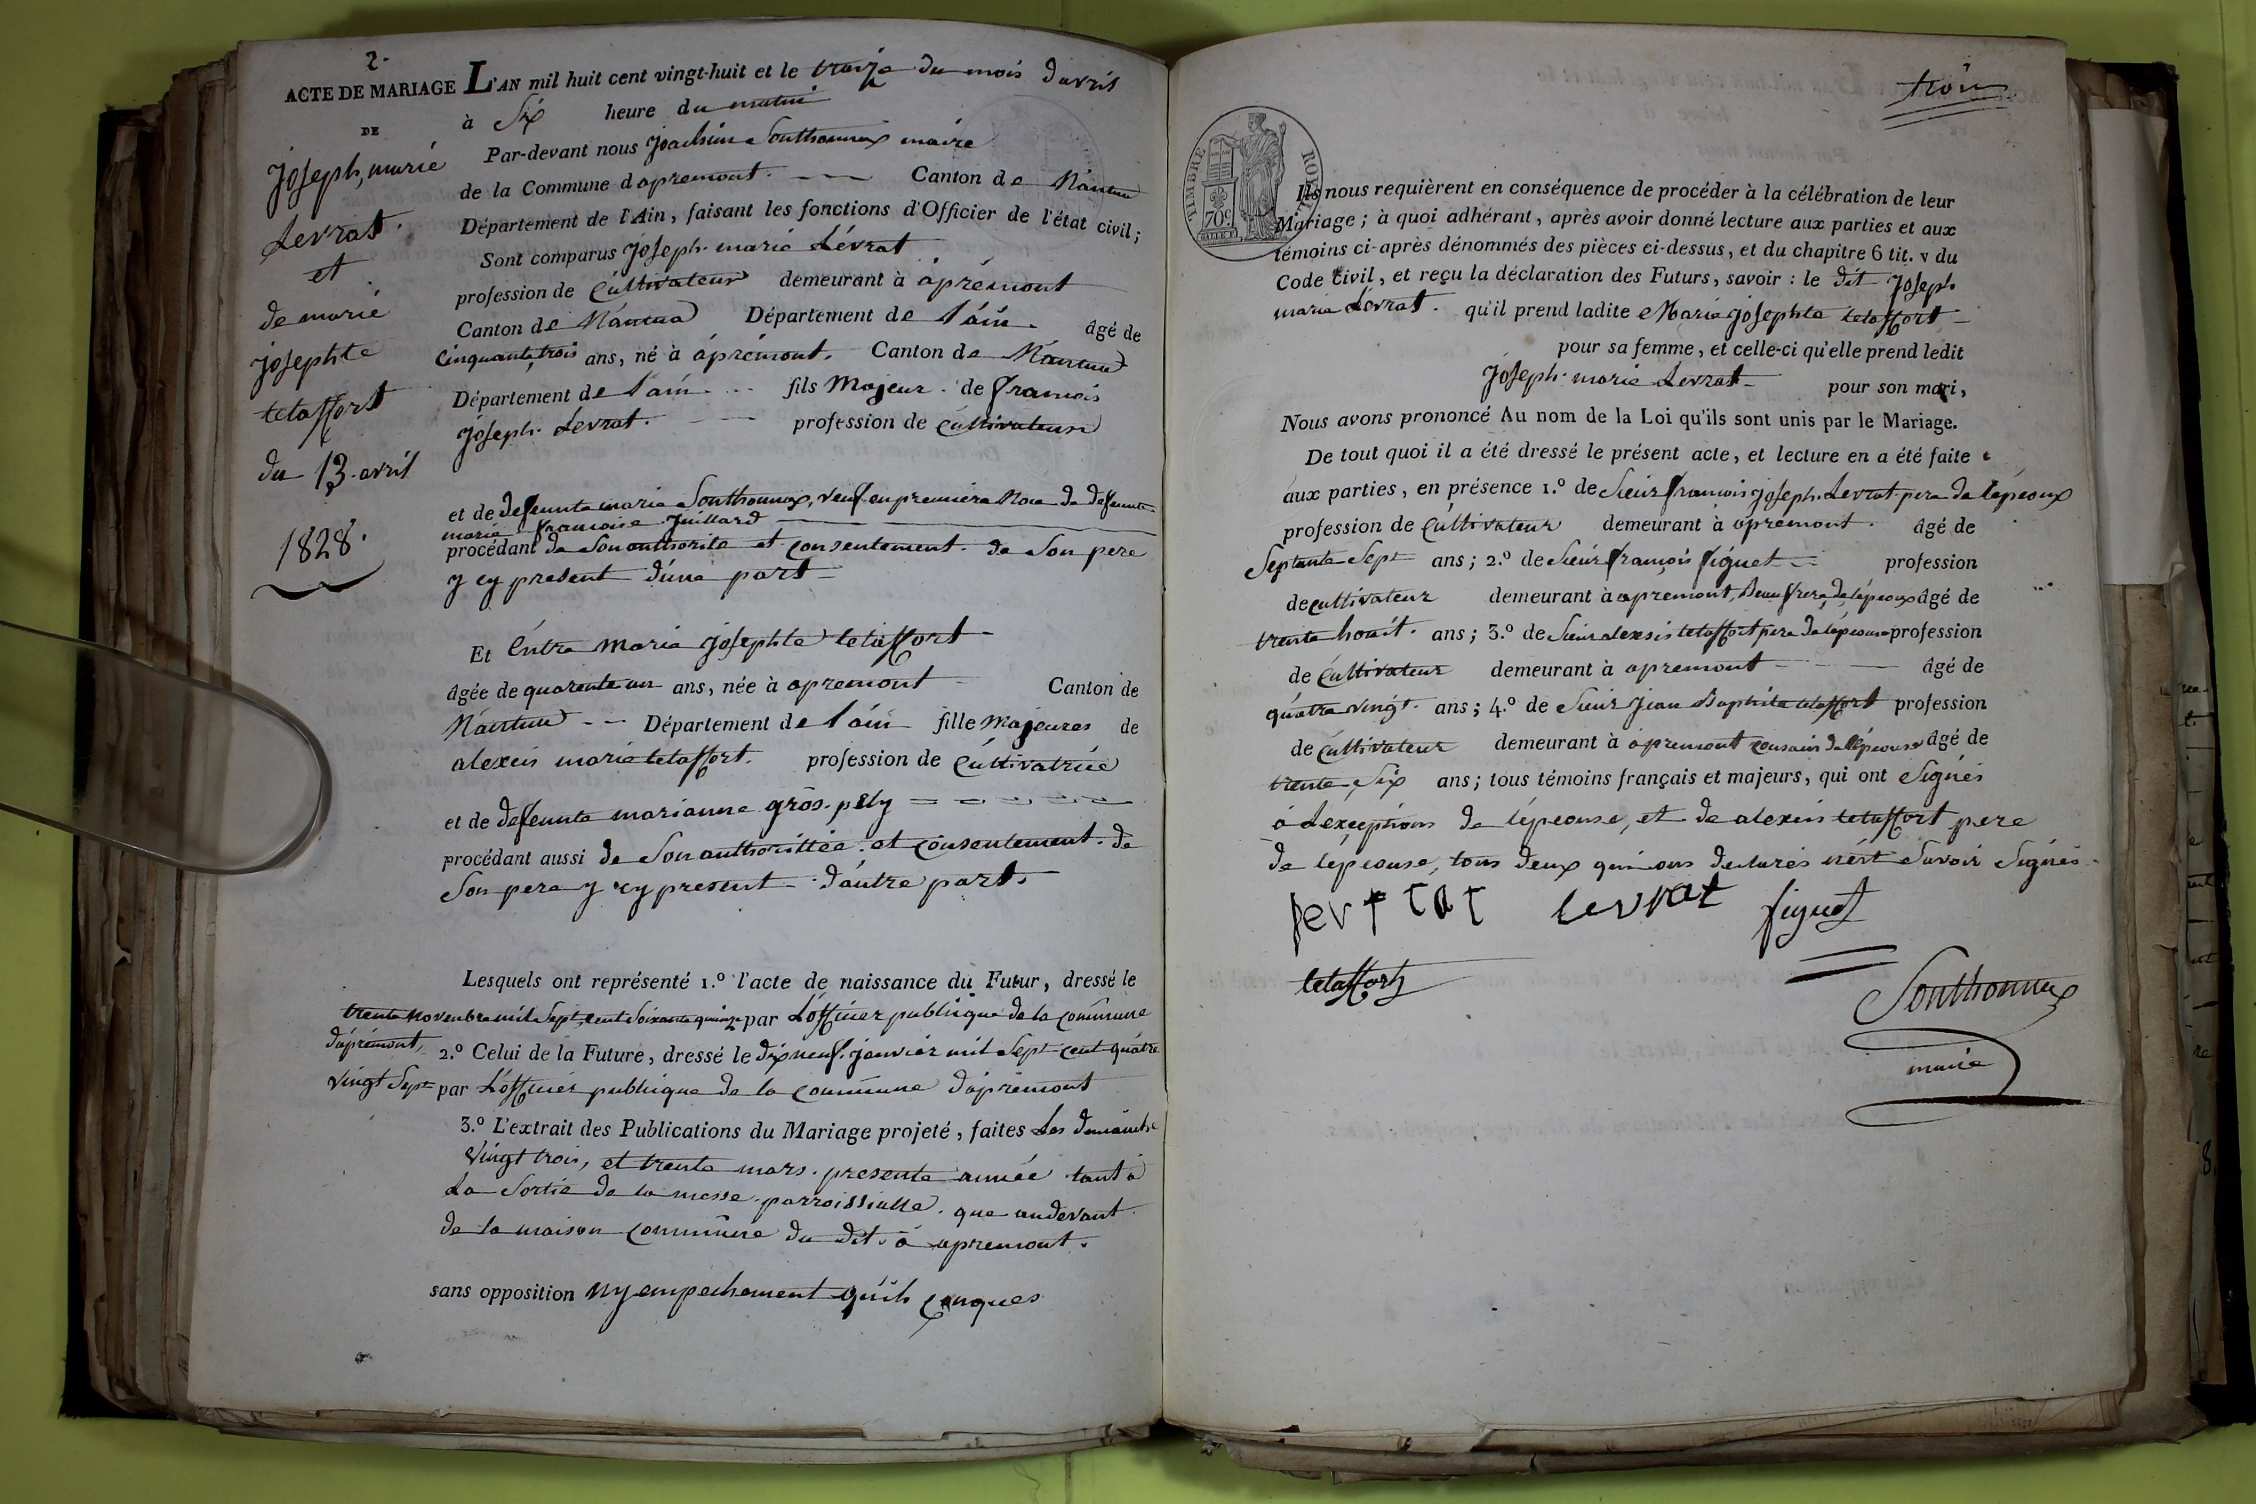 2.
ACTE DE MARIAGE
DE
Joseph, marie
Levrat.
et
de marie
josephte
letaffort
du 13. avril
1828.
L'AN mil huit cent vingt-huit et le treize du mois davril
à Six heure du matin
Par-devant nous Joachim Sonthonnax maire
de la Commune dapremont. Canton de Nantua
Département de l'Ain, faisant les fonctions d'Officier de l'état civil;
Sont comparus Joseph. marie Lévrat
profession de Cultivateur demeurant à áprémont
Canton de Nantua Département de l'áin. âgé de
Cinquante,trois ans, né à áprémont. Canton de Nantua
Département de l'ain fils Majeur. de francois
Joseph. Levrat. profession de Cultivateur
et de deffunte marie Sonthonnax, veuf en premiere Noce de deffunte
marie francoise Juillard
procédant de Son authorite et consentement. de Son pere
y cy present d'une part
Et Entre Marie josephte letaffort
âgée de quarente un ans, née à apremont Canton de
Nantua Département de l'áin fille Majeures de
alexeis marie letaffort. profession de Cultivatrice
et de deffunte marianne grôs. pely
procédant aussi de Son authorittée. et consentement. de
Son pere y cy present d'áutre part.
Lesquels ont représenté 1.º l'acte de naissance du Futur, dressé le
trente novenbre mil Sept, cent Soixante quinze par L'officier publique de la commune
d'aprémont, 2.º Celui de la Future, dressé le dix neuf. janvier mil Sept cent quatre
vingt Sept par L'officier publique de la commune d'aprémont
3.º L'extrait des Publications du Mariage projeté, faites Les dimanche
vingt trois, et trente mars. presente année tant à
La Sortie de la messe parroissialle. que audevant
de la maison commune du dit. à apremont.
sans opposition ny empechement quils conques
trois
TIMBRE ROYAL
70 c.
Ils nous requièrent en conséquence de procéder à la célébration de leur
Mariage; à quoi adhérant, après avoir donné lecture aux parties et aux
témoins ci-après dénommés des pièces ci-dessus, et du chapitre 6 tit. v du
Code Civil, et reçu la déclaration des Futurs, savoir: le dit Joseph
marie Lévrat. qu'il prend ladite Marie josephte letaffort
pour sa femme, et celle-ci qu'elle prend ledit
Joseph. marie Levrat pour son mari,
Nous avons prononcé Au nom de la Loi qu'ils sont unis par le Mariage.
De tout quoi il a été dressé le présent acte, et lecture en a été faite
aux parties, en présence 1.º de Sieur francois joseph. Levrat. pere de lépeoux
profession de Cultivateur demeurant à apremont. âgé de
Septante Sept ans; 2.º de Sieur francois figuet profession
de cultivateur demeurant à apremont, Beau frere, de, lépeoux âgé de
trente houit. ans; 3.º de Sieur alexsis letaffort pere de lépeouse profession
de Cultivateur demeurant à apremont âgé de
quatre vingt. ans; 4.º de Sieur Jean Baptiste letaffort profession
de Cultivateur demeurant à apremont cousain de lépeouse âgé de
trente, Six ans; tous témoins français et majeurs, qui ont Signés
á Lexceptions de lépeouse, et de alexeis letaffort pere
de lépeouse, tous deux qui ons declarés nést Savoir Signés.
levrat figuet
letaffort
Sonthonnax
maire